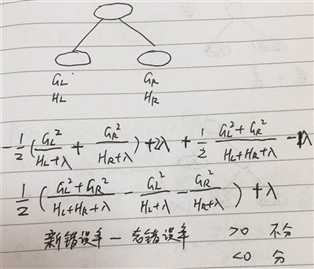 G_L G_R
H_L H_R
-\frac{1}{2}(\frac{G_L^2}{H_L+λ} + \frac{G_R^2}{H_R+λ})+2λ + \frac{1}{2} \frac{G_L^2+G_R^2}{H_L+H_R+λ} -λ
\frac{1}{2} (\frac{G_L^2+G_R^2}{H_L+H_R+λ} - \frac{G_L^2}{H_L+λ} - \frac{G_R^2}{H_R+λ}) + λ
新错误率 - 老错误率 >0 不分
<0 分